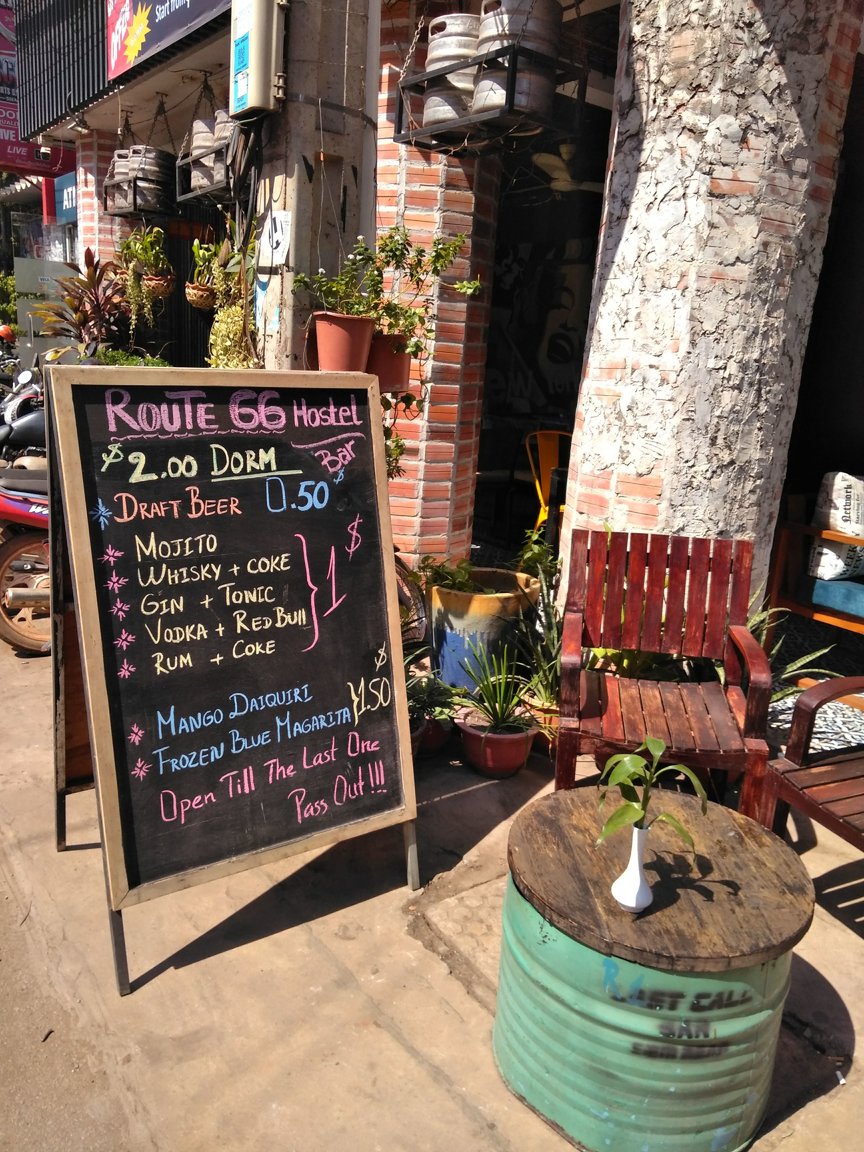 Start from
OFFER
LIVE
ATM
ROUTE 66 Hostel
Bar
$2.00 DORM
DRAFT BEER 0.50$
MOJITO
WHISKY + COKE
GIN + TONIC
VODKA + RED BUll
RUM + COKE
1$
MANGO DAIQUIRI
FROZEN BLUE MAGARITA
$1.50
Open Till The Last One
Pass Out!!!
Network
LAST CALL
BAR